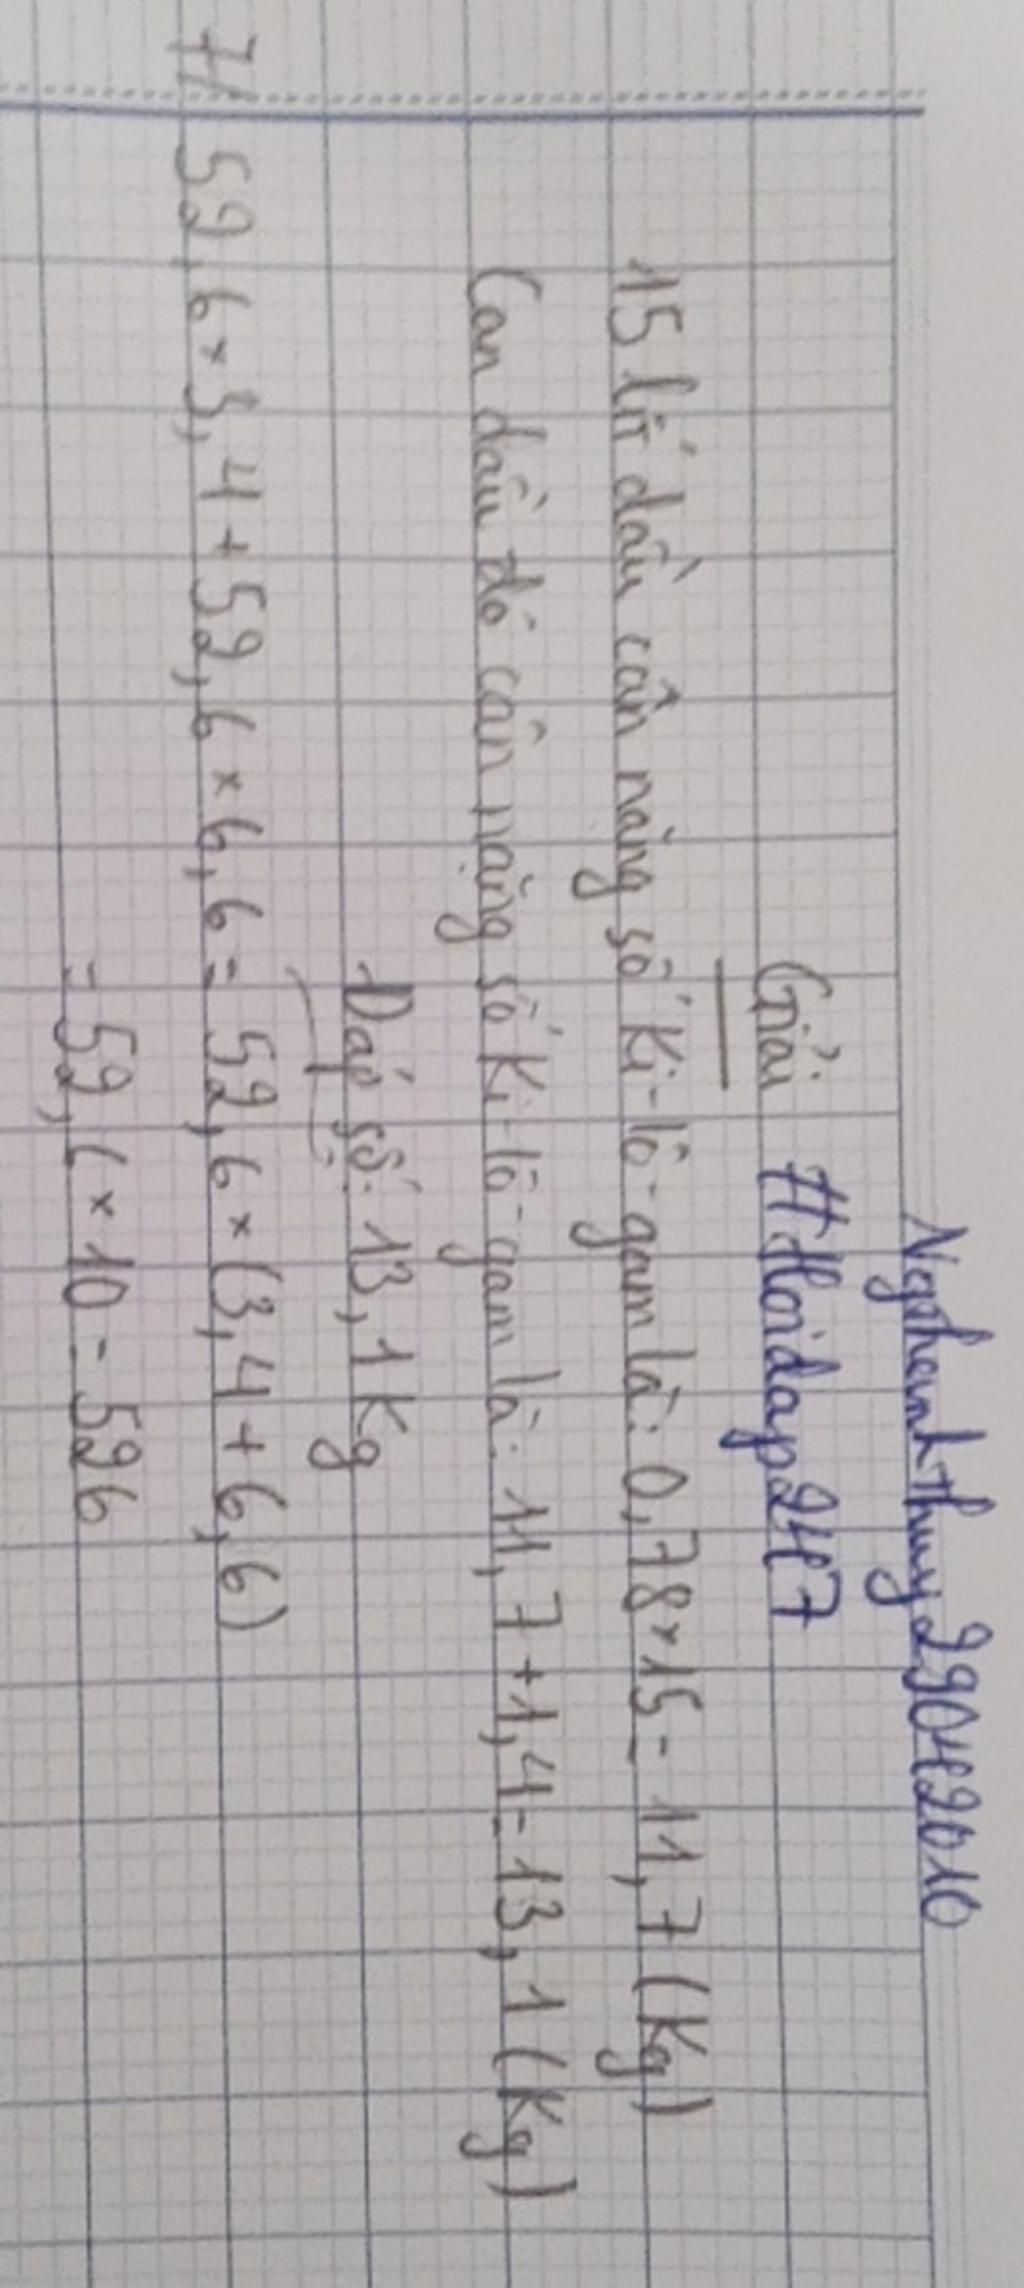 Ngphanhthuy29042010
Giải #Hoidap247
15 lít dầu cân nặng số Ki-lô-gam là: 0,78×15=11,7 (Kg)
Can dầu đó cân nặng số Ki-lô-gam là: 11,7+1,4=13,1 (Kg)
Đáp số: 13,1 Kg
7/ 52,6×3,4+52,6×6,6=52,6×(3,4+6,6)
=52,6×10=526